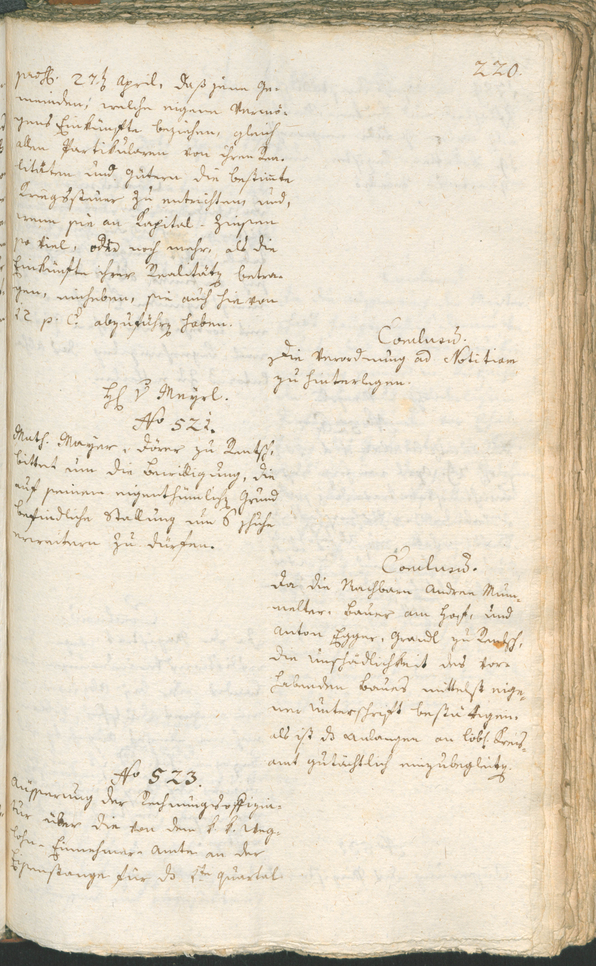 220.
praes. 27t April, daß jene Ge-
meinden, welche eigene Vermö-
gens Einkünfte beziehen, gleich
allen Partikularen von ihren Rea-
litäten und Gütern die bestimte
Kriegssteuer zu entrichten, und,
wenn sie an Kapital-Zinsen
so viel, oder noch mehr, als die
Einkünfte ihrer Realitäten betra-
gen, einheben, sie auch hievon
12 p. C. abzuführen haben.
Conclusum.
Die Verordnung ad Notitiam
zu hinterlegen.
H V Meyrl.
No 521.
Math. Mayer, zu Rentsch,
bittet um die Bewilligung, die
auf seinem eigenthümlichen Grund
befindliche Stallung um 8 Schuhe
erweitern zu dürfen.
Conclusum.
Da die Nachbarn Andreas Mum-
melter, Bauer am Hof, und
Anton Egger, Gradl zu Rentsch,
die Unschädlichkeit des vor-
habenden Baues mittelst eige-
ner Unterschrift bestättigen,
als ist das Anlangen an löbl. Kreis-
amt gutächtlich einzubegleiten.
No 523.
Äusserung der Rechnungsoffizia-
tur über die von dem k. k. Weg-
lohn-Einnehmer-Amte an der
für das 1te Quartal